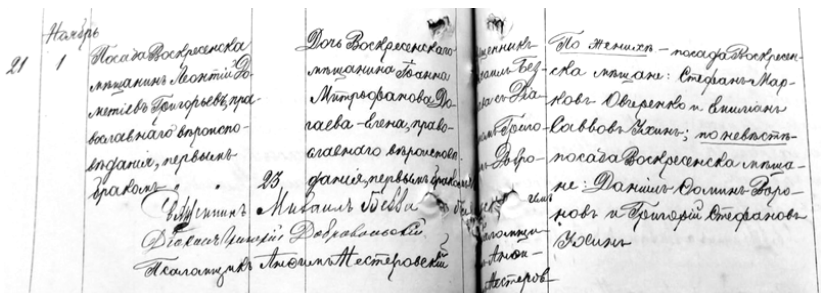 Ноябрь
21 1 Посада Воскресенска
мѣщанинъ Леонтій До-
метіевъ Григорьевъ, пра-
вославнаго вѣроиспо-
вѣданія, первымъ
бракомъ
23
Дочь Воскресенскаго
мѣщанина Іоанна
Митрофанова До-
гаева - Елена, право-
славнаго вѣроисповѣ-
данія, первымъ бракомъ
Священникъ Михаилъ Безва
Діаконъ Григорій Добровольскій
Псаломщикъ Анѳимъ Нестеровскій
щенникъ
хаилъ Без-
Григо-
Добро-
псаломщи-
Анѳи-
Нестеров-
По женихѣ - посада Воскресен-
ска мѣщане: Стефанъ Мар-
ковъ Овчеренко и
Саввовъ Ухинъ; по невѣстѣ
посада Воскресенска мѣща-
не: Даніилъ Ѳоминъ Воро-
новъ и Григорій Стефановъ
Ухинъ